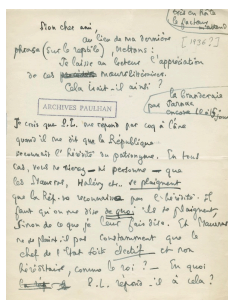 Mon cher ami,
au lieu de ma dernière
phrase (sur le reptile), mettons :
Je laisse au lecteur l'appréciation
de cas
Cela irait-il ainsi ?
[1936?]
ARCHIVES PAULHAN
par Jarnac
Je crois que P.L. me répond par coq à l'âne
quand il me dit que la République
reconnaît l'hérédité du patronyme. En tout
cas, vous ne nierez – ni personne – que
les Maurras, Halévy etc. se plaignent
que la Rép. ne reconnaisse pas l'hérédité. Il
faut qu'on me dise de quoi ils se plaignent,
sinon de ce que je leur fais dire. Et Maurras
ne se plaint-il pas constamment que le
chef de l'État soit électif et non
héréditaire, comme le roi ? – En quoi
P.L. répond-il à cela ?